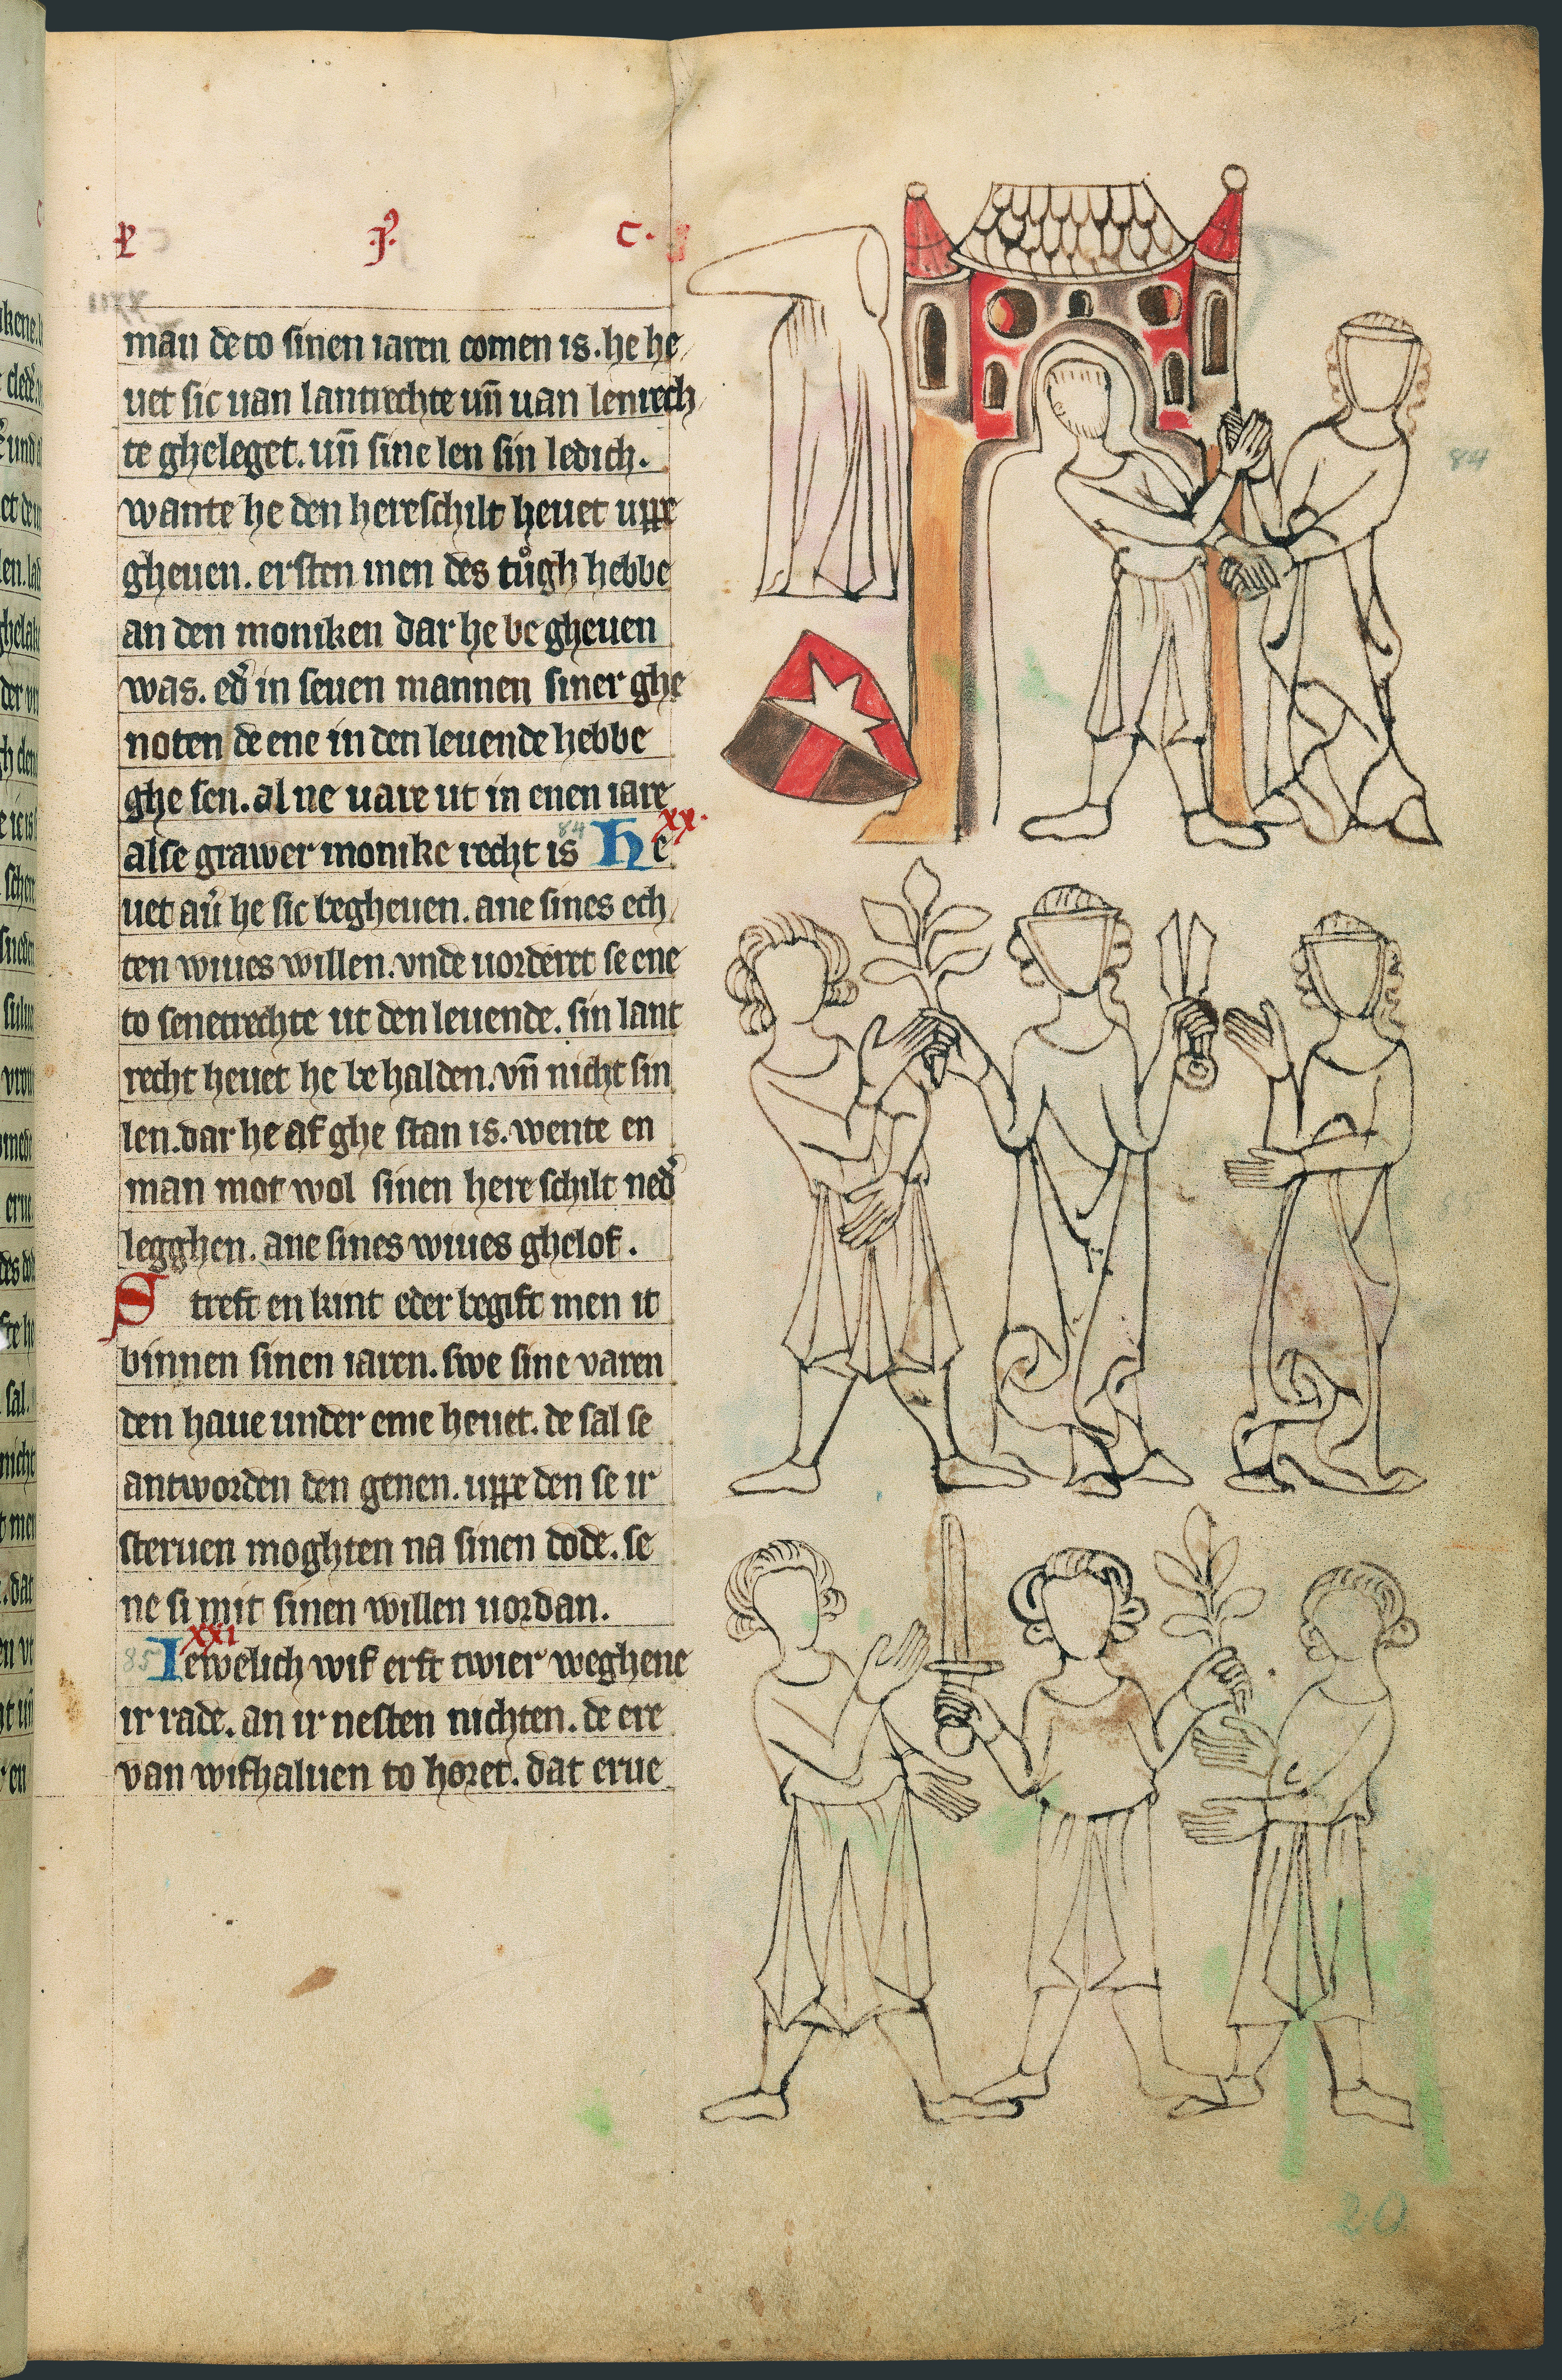 P · J · C ·
man de to sinen iaren comen is. he he
uet sic uan lantrechte un̄ uan lenrech
te gheleget. un̄ sine len sin ledich.
wante he den hereschilt heuet uppe
gheuen. ersten men des tůgh hebbe
an den moniken dar he be gheuen
was. ed᷑ in seuen mannen siner ghe
noten de ene in den leuende hebbe
ghe sen. al ne uare ut in enen iare
xx.
alse grawer monike recht is He
uet au᷑ he sic begheuen. ane sines ech
ten wiues willen. vnde uorderet se ene
to senetrechte ut den leuende. sin lant
recht heuet he be halden. vn̄ nicht sin
len. dar he af ghe stan is. wente en
man mot wol sinen here schilt ned᷑
legghen. ane sines wiues ghelof.
Streft en kint eder begift men it
binnen sinen iaren. swe sine varen
den haue under eme heuet. de sal se
antworden den genen. uppe den se ir
steruen moghten na sinen dode. se
ne si mit sinen willen uordan.
xxi
Iewelich wif erft twier weghene
ir rade. an ir nesten nichten. de ere
van wifhaluen to horet. dat erue
84
84
85
20